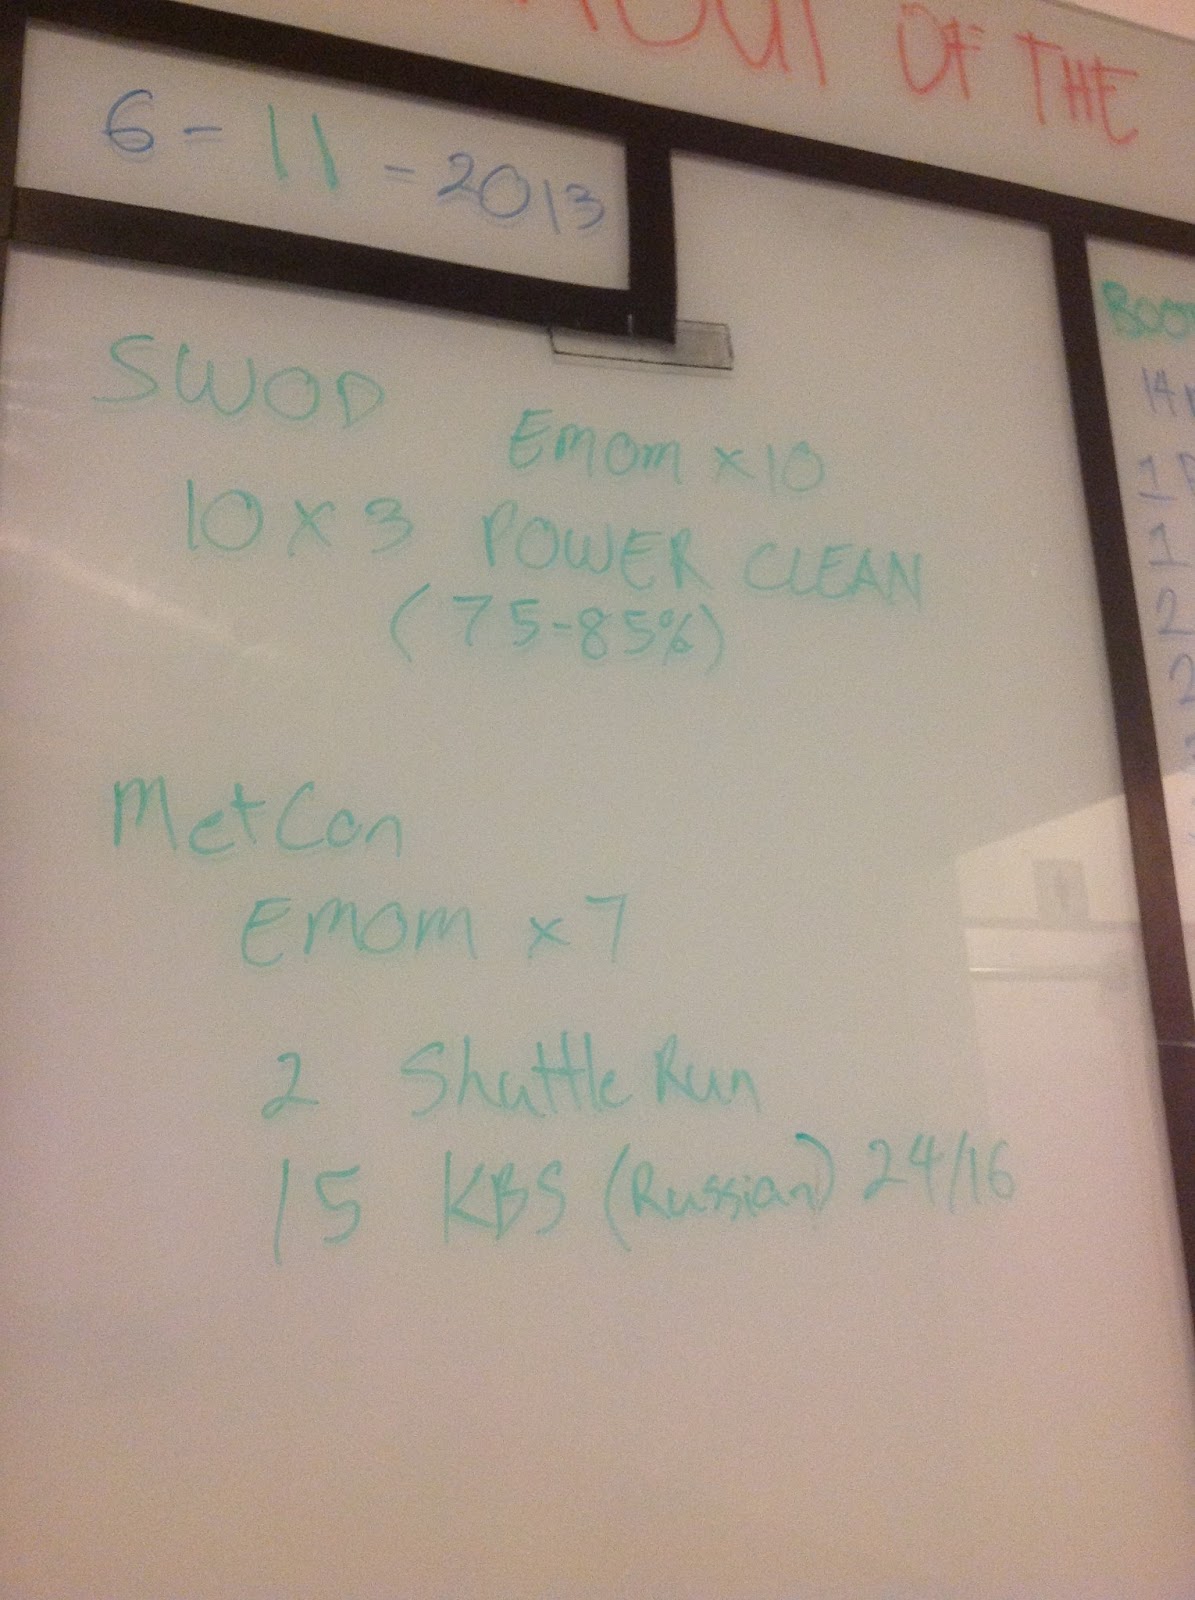 OUT OF THE
6 - 11 - 2013
SWOD
Emom x 10
10 x 3 POWER CLEAN
(75-85%)
MetCon
Emom x 7
2 Shuttle Run
15 KBS (Russian) 24/16
14
1
1
2
2